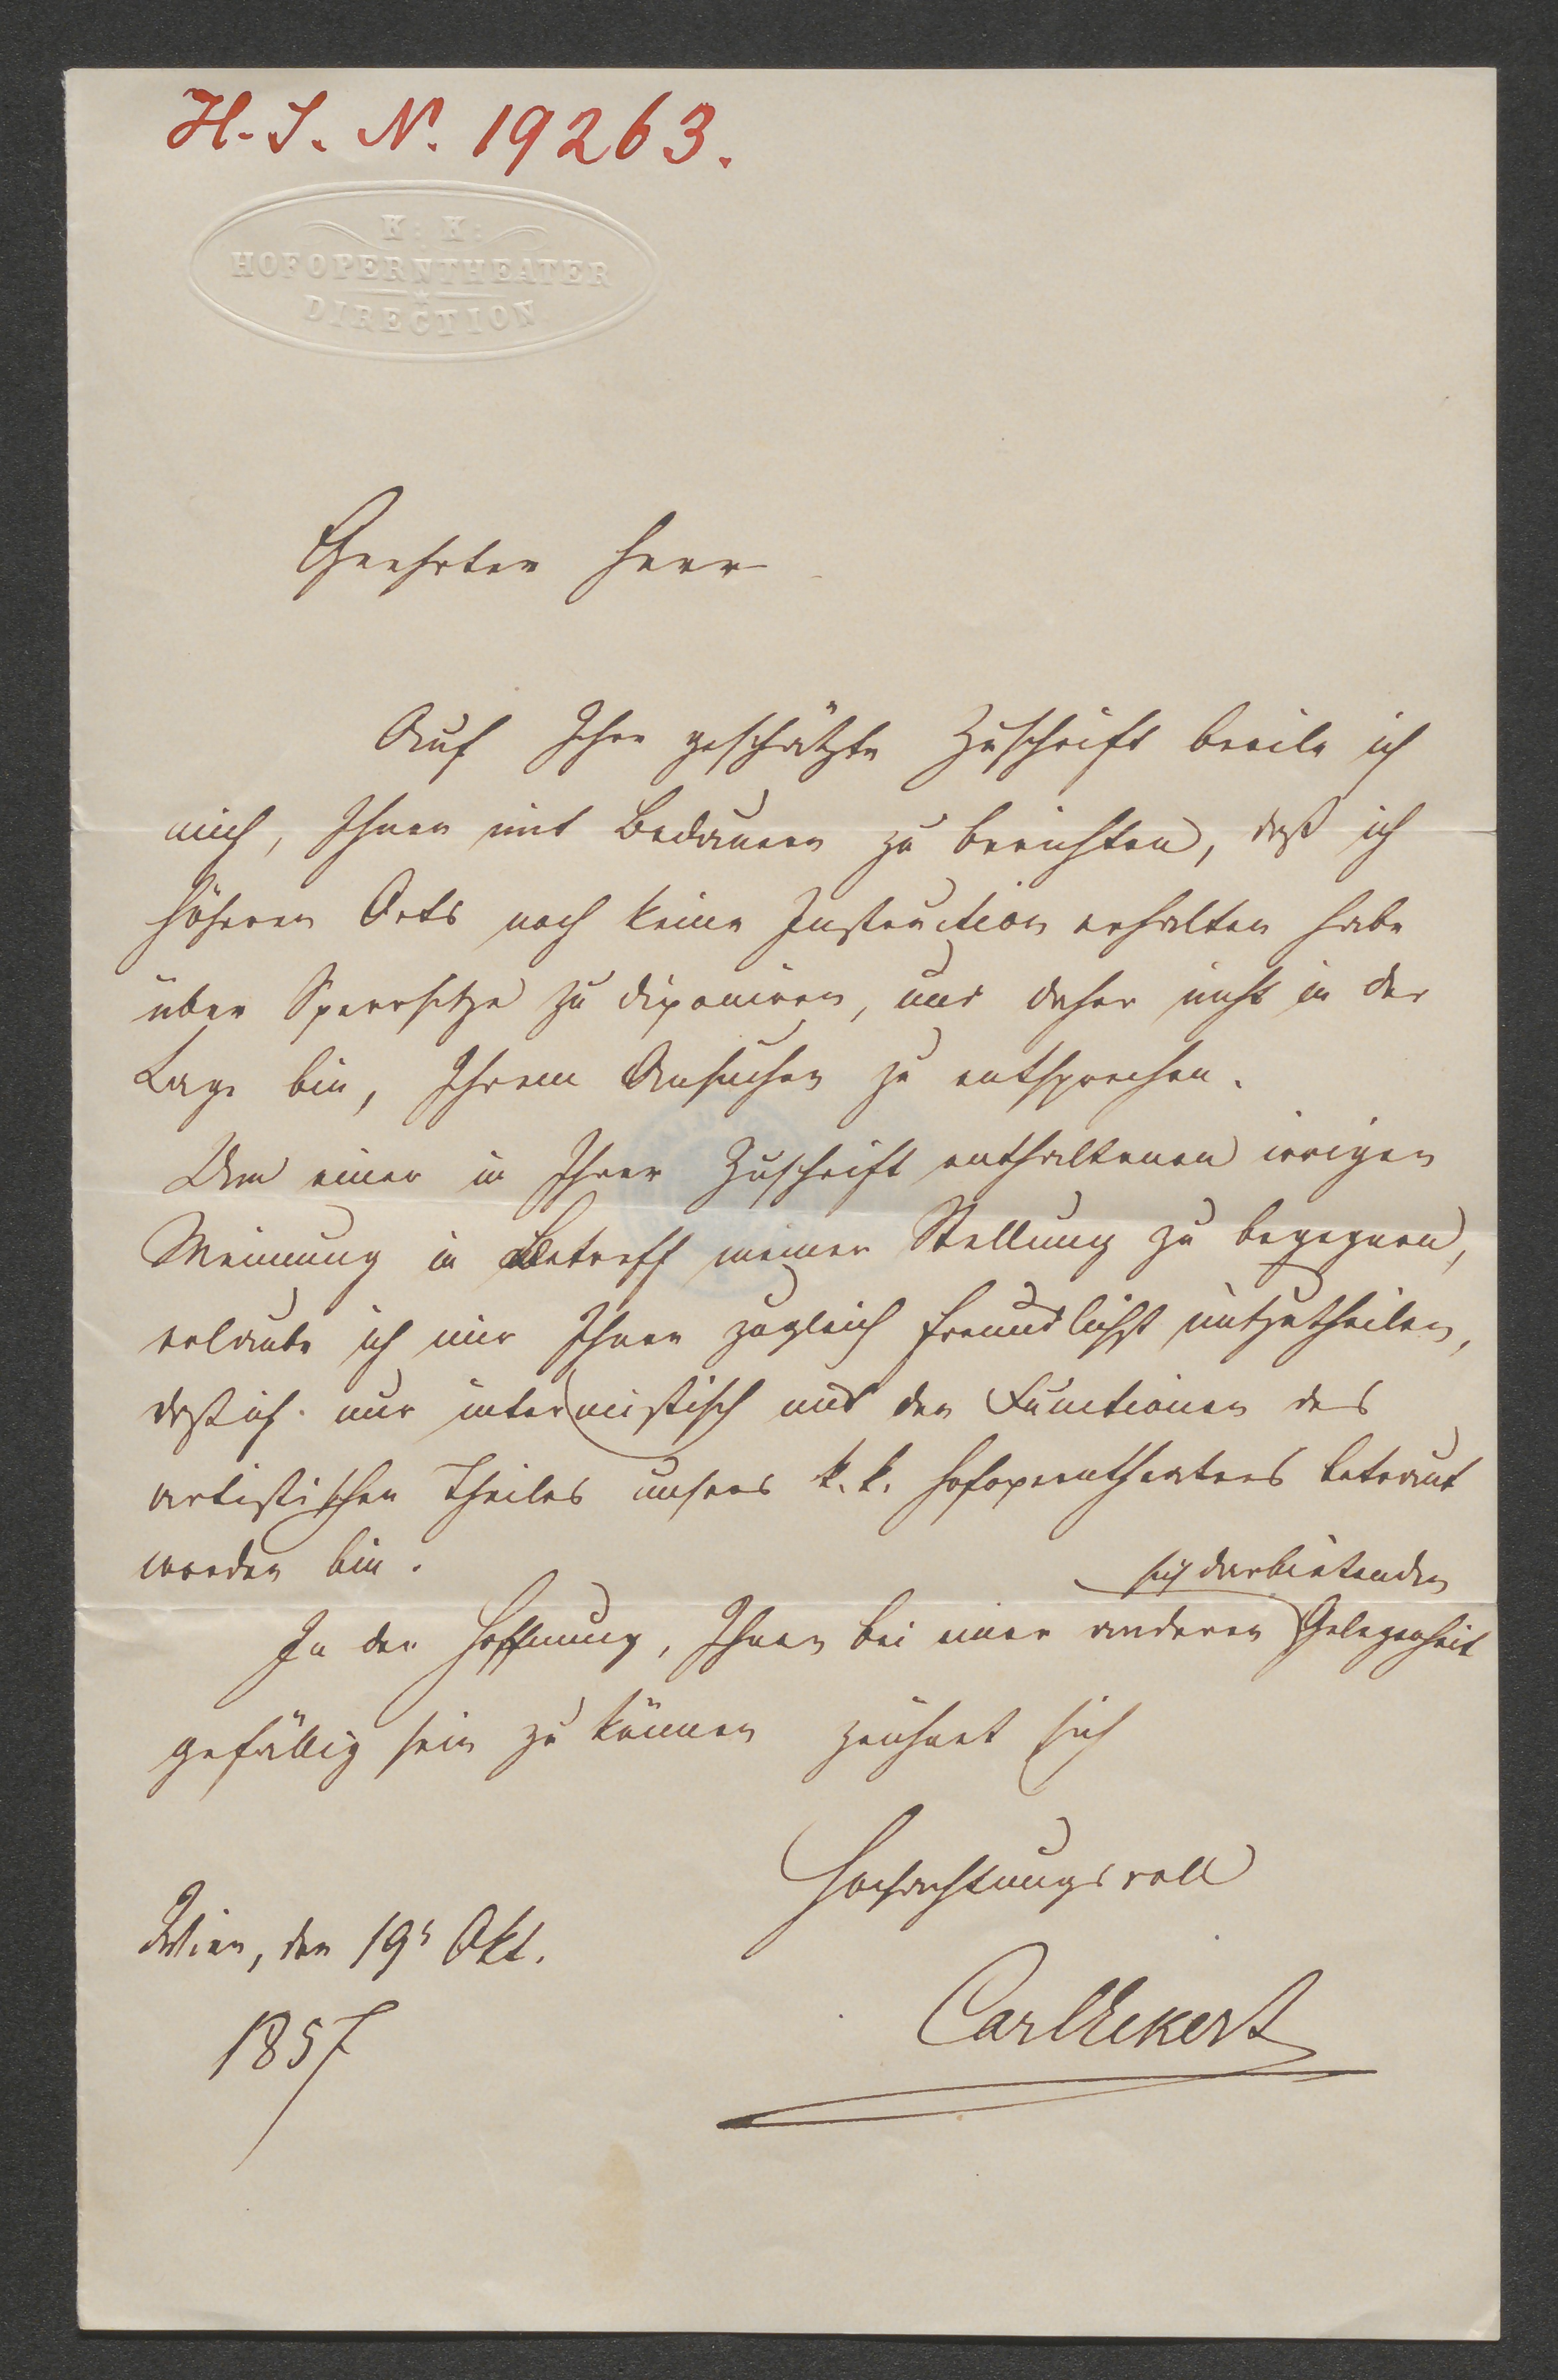 H. I. N. 19263.
K: K:
HOFOPERNTHEATER
DIRECTION
Geehrter Herr
Auf Ihre geschätzte Zuschrift beeile ich
mich, Ihnen mit Bedauern zu berichten, daß ich
höheren Orts noch keine Instruction erhalten habe
über Sperrsitze zu diponiren, und daher nicht in der
Lage bin, Ihrem Ansuchen zu entsprechen.
Um einer in Ihrer Zuschrift enthaltenen irrigen
Meinung in Betreff meiner Stellung zu begegnen,
erlaube ich mir Ihnen zugleich freundlichst mitzutheilen,
daß ich nur intermistisch mit den Functionen des
artistischen Theiles unseres k. k. Hofoperntheaters betraut
worden bin.
sich darbietenden
In der Hoffnung, Ihnen bei einer anderen Gelegenheit
gefällig sein zu können zeichnet sich
Hochachtungsvoll
Wien, den 19t Okt.
1857
Carl Eckert